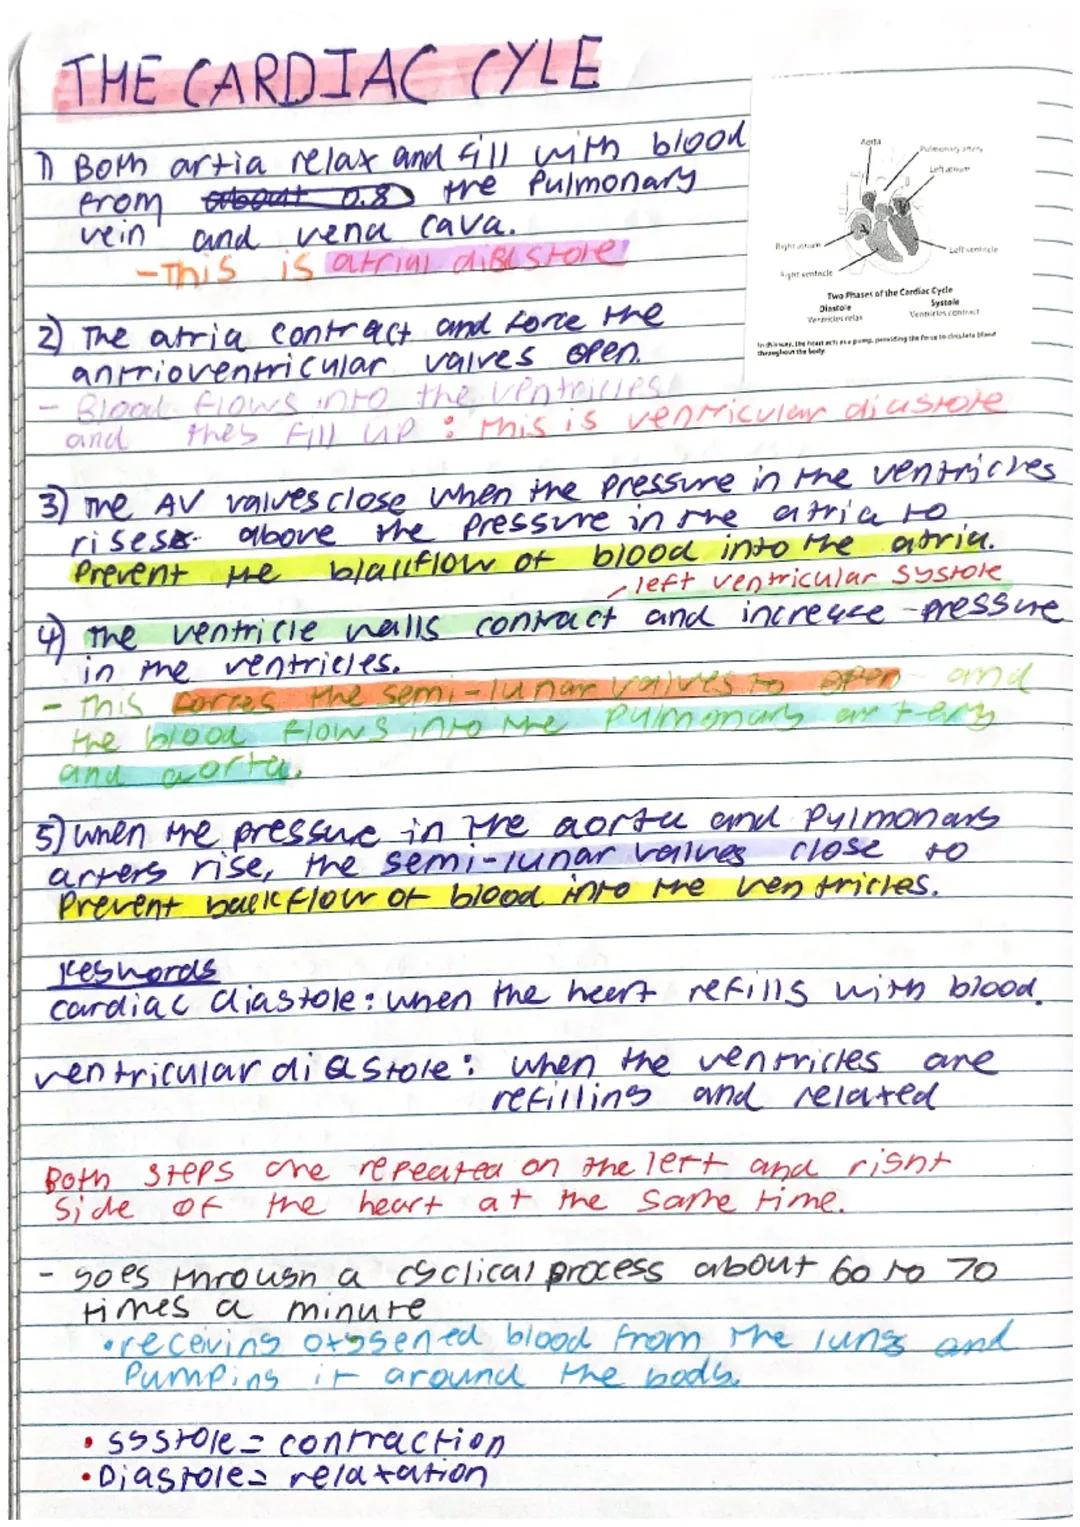 THE CARDIAC CYLE
1) Both artia relax and fill with blood
from about 0.8 the Pulmonary
vein and vena cava.
-This is atrial diastole
Aorta
Pulmonary artery
Left atrium
Right atrium
Left ventricle
Right ventricle
Two Phases of the Cardiac Cycle
Diastole
Systole
Ventricles relax
Ventricles contract
In this way, the heart acts as a pump, providing the force to circulate blood
throughout the body.
2) The atria contract and force the
antrioventricular valves open.
- Blood flows into the ventricles
and they fill up : this is ventricular diastole
3) The AV valves close when the pressure in the ventricles
rises above the pressure in the atria to
Prevent the blackflow of blood into the atria.
left ventricular systole
4) The ventricle walls contract and increase pressure
in the ventricles.
- this forces the semi-lunar valves to open and
the blood flows into the pulmonary artery
and aorta.
5) when the pressure in the aorta and pulmonary
artery rise, the semi-lunar valves close to
Prevent backflow of blood into the ventricles.
Keywords
cardiac diastole: when the heart refills with blood.
ventricular diastole: when the ventricles are
refilling and relaxed
Both steps are repeated on the left and right
side of the heart at the same time.
- goes through a cyclical process about 60 to 70
times a minute
•receving oxygened blood from the lungs and
Pumping it around the body.
• systole = contraction
• Diastole = relaxation